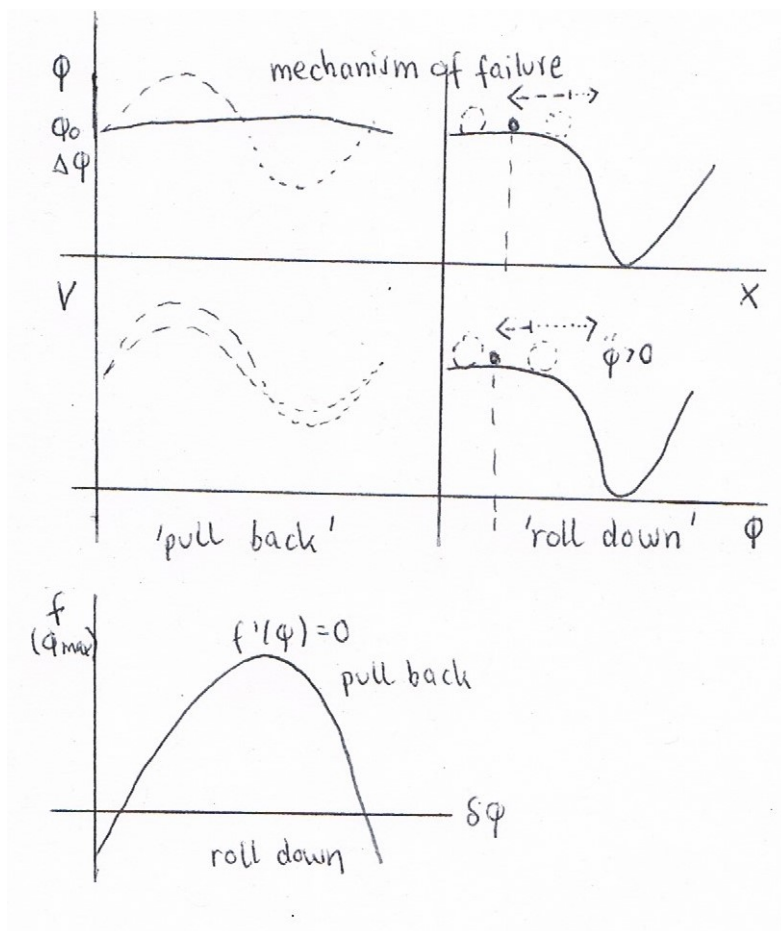 mechanism of failure
φ
φ₀
Δφ
V
X
φ̈>0
'pull back'
'roll down'
φ
f
(φmax)
f'(φ)=0
pull back
δφ
roll down